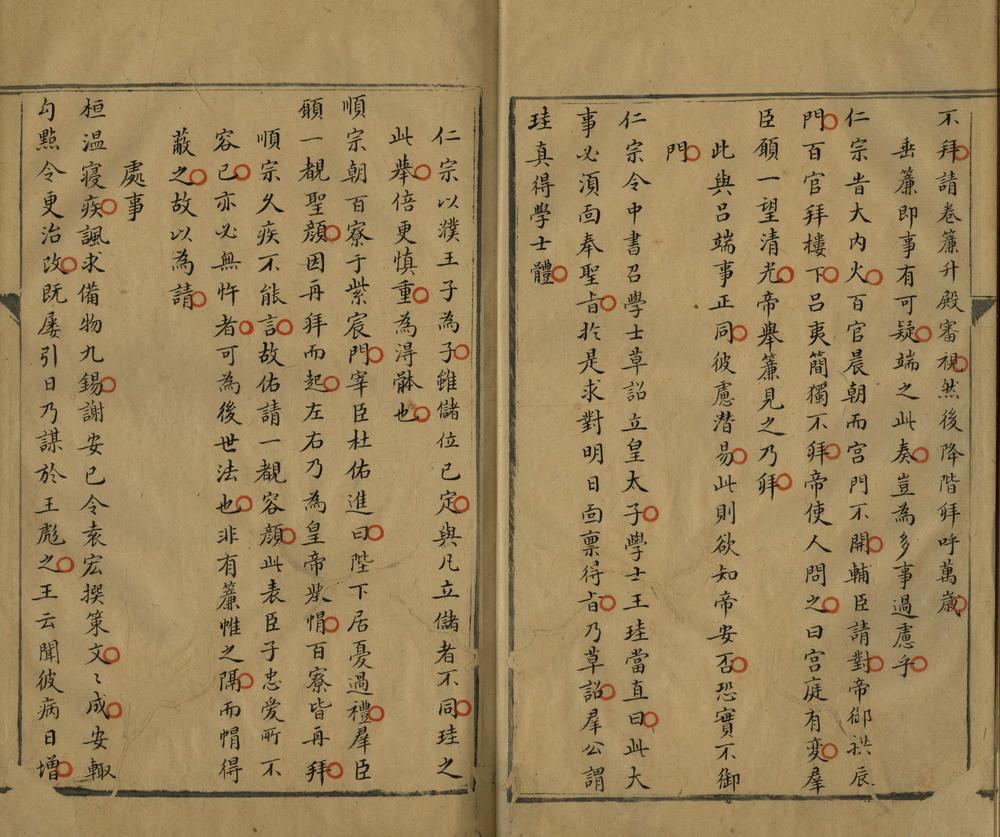 不拜請卷簾升殿審視然後降階拜呼萬歲
垂簾即事有可疑端之此奏豈為多事過慮乎
仁宗旹大内火百官晨朝而宫門不開輔臣請對帝御拱辰
門百官拜樓下吕夷簡獨不拜帝使人問之曰宫庭有變羣
臣願一望清光帝舉簾見之乃拜
此與吕端事正同彼慮潜易此則欲知帝安否恐實不御
門
仁宗令中書召學士草詔立皇太子學士王珪當直曰此大
事必須面奉聖旨於是求對明日面禀得旨乃草詔羣公謂
珪真得學士體
仁宗以濮王子為子雖儲位已定與凡立儲者不同珪之
此舉倍更慎重為得體也
順宗朝百寮于紫宸門宰臣杜佑進曰陛下居憂過禮羣臣
願一覩聖顔因再拜而起左右乃為皇帝褰㡌百寮皆再拜
順宗久疾不能言故佑請一覩容顔此表臣子忠爱所不
容已亦必無忤者可為後世法也非有簾帷之隔而㡌得
蔽之故以為請
處事
桓温寝疾諷求備物九錫謝安已令袁宏撰策文〻成安輙
勾點令更治改既屡引日乃謀於王彪之王云聞彼病日增